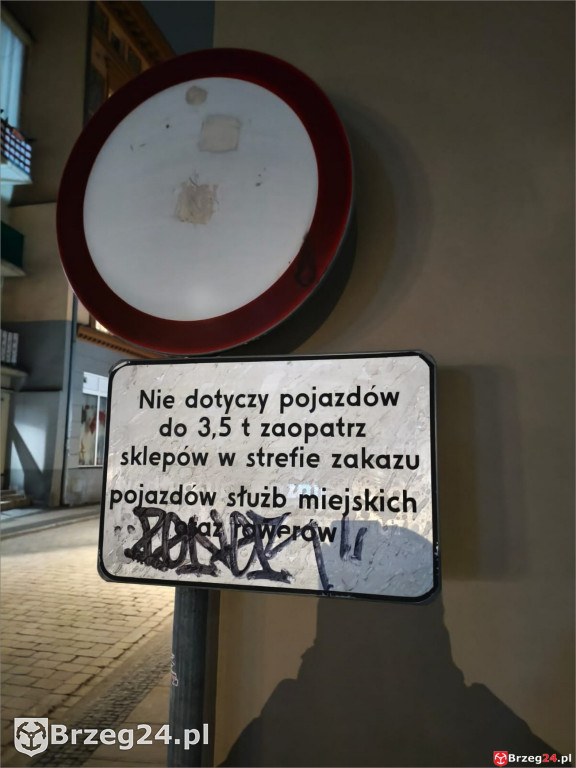 Nie dotyczy pojazdów
do 3,5 t zaopatrz
sklepów w strefie zakazu
pojazdów służb miejskich
oraz rowerów
Brzeg24.pl
Brzeg24.pl